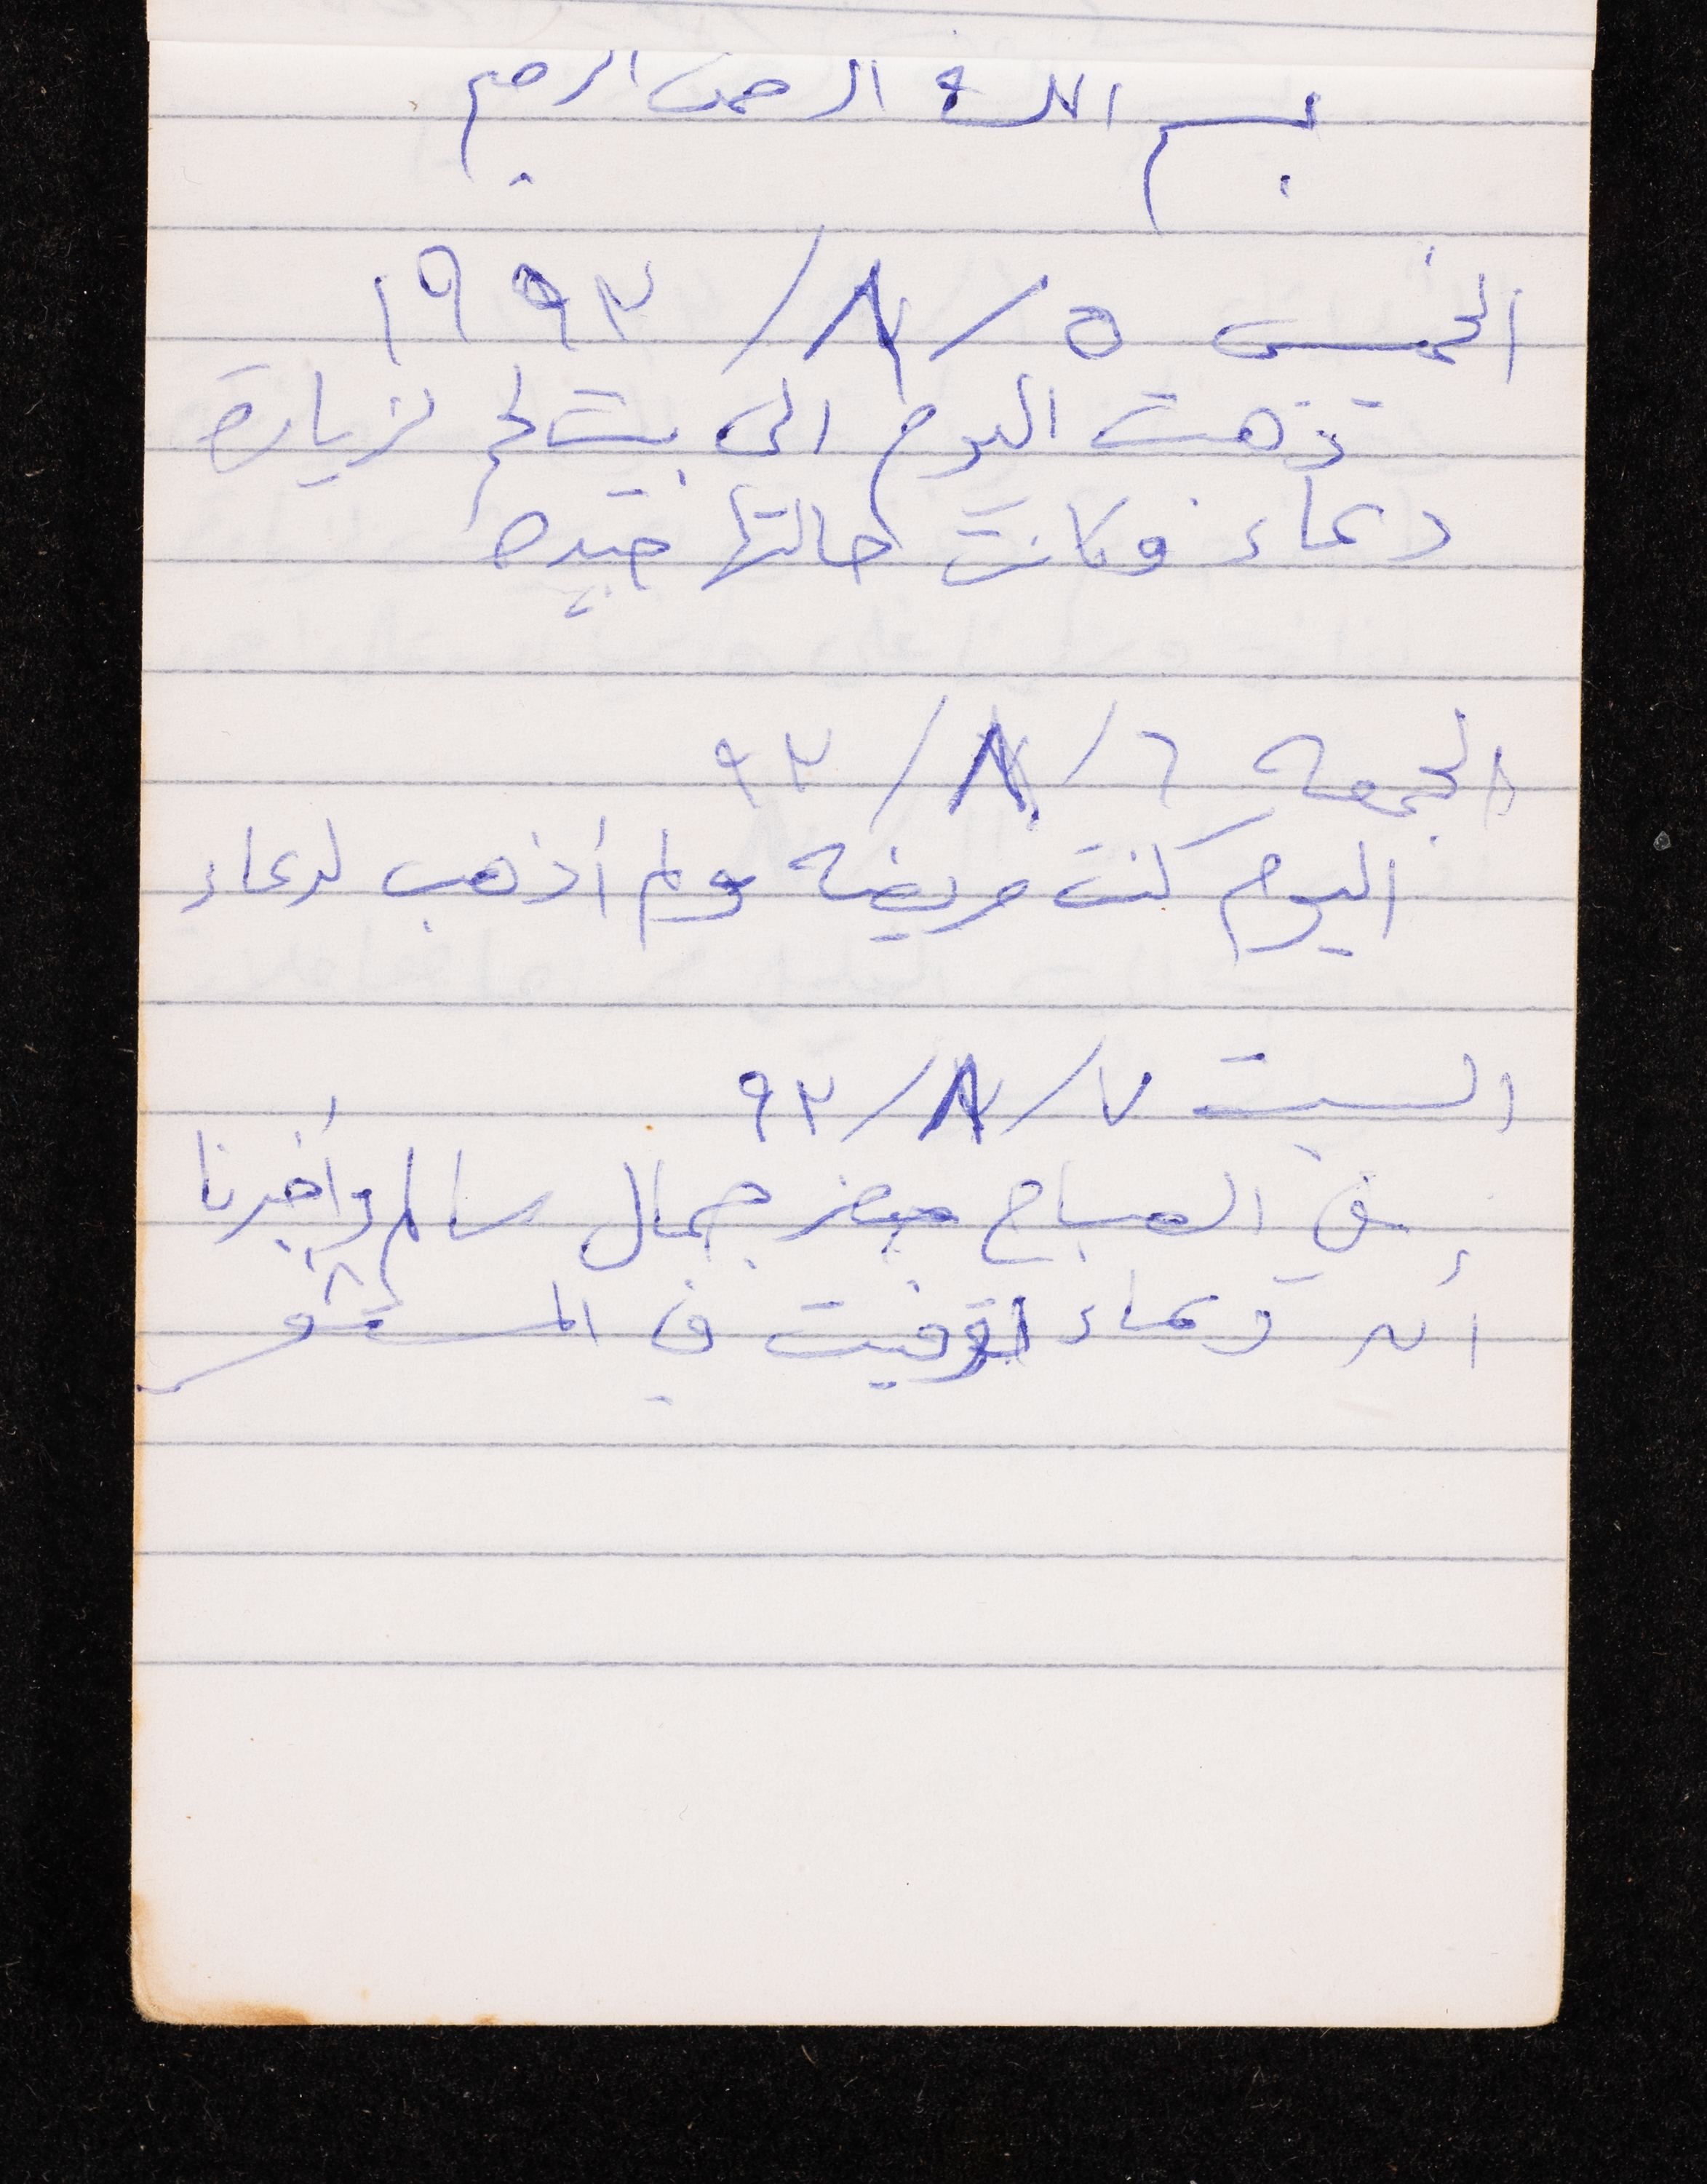 بسم الله الرحمن الرحيم
الخميس ٥/٨/١٩٩٣
ذهبت اليوم الى بيت لحم لزيارة
دعاء وكانت حالتها جيده
الجمعه ٦/٨/٩٣
اليوم كنت مريضه ولم أذهب لدعاء
السبت ٧/٨/٩٣
في الصباح حضر جمال سالم وأخبرنا
أن دعاء توفيت في المستشفى